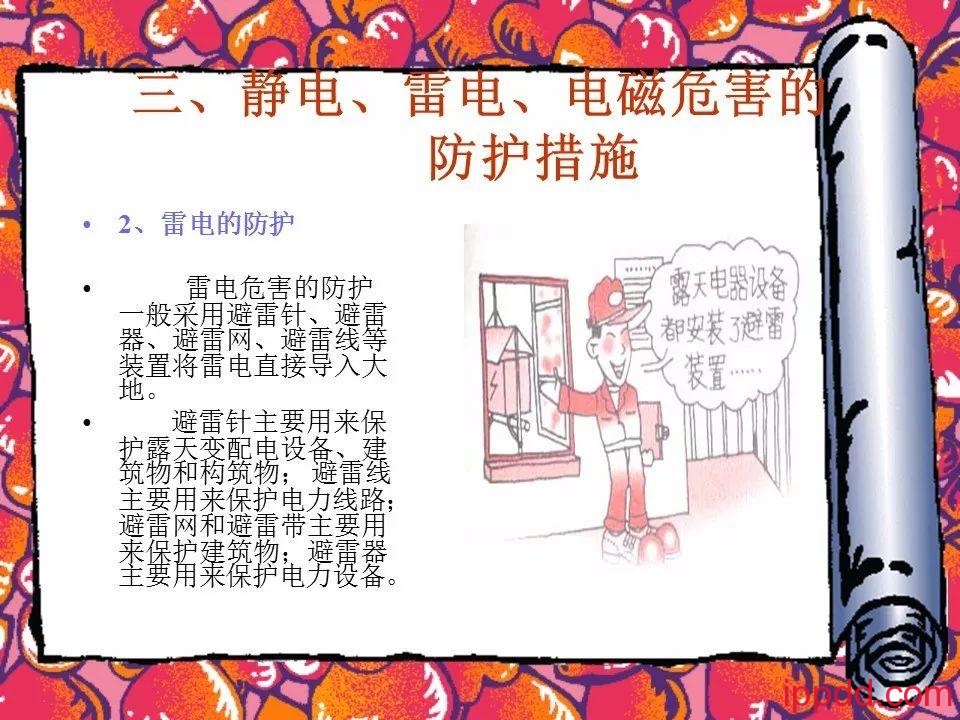 三、静电、雷电、电磁危害的
防护措施
• 2、雷电的防护
• 雷电危害的防护
一般采用避雷针、避雷
器、避雷网、避雷线等
装置将雷电直接导入大
地。
• 避雷针主要用来保
护露天变配电设备、建
筑物和构筑物；避雷线
主要用来保护电力线路；
避雷网和避雷带主要用
来保护建筑物；避雷器
主要用来保护电力设备。
露天电器设备
都安装了避雷
装置……
ippdd.com